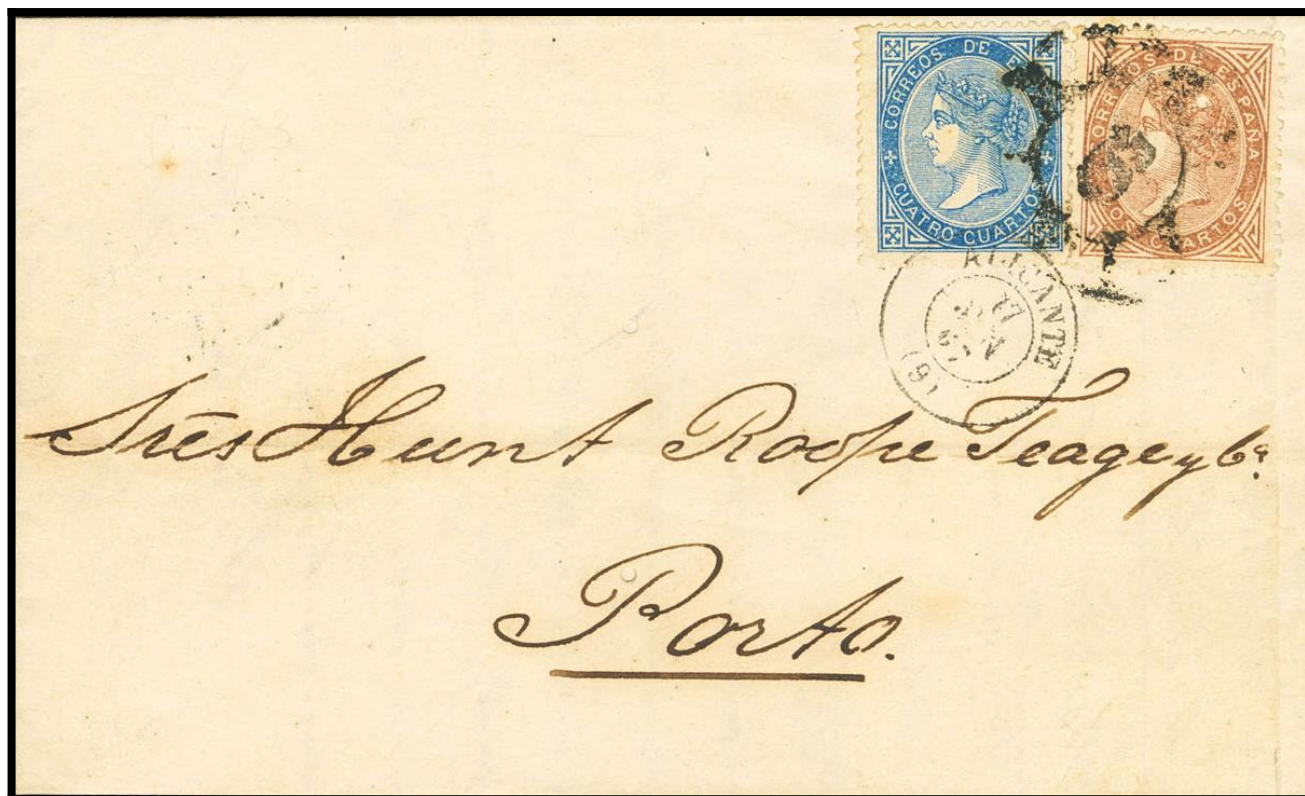 CORREOS DE E
CUATRO CUARTOS
CORREOS DE ESPAÑA
OS CUARTOS
ALICANTE
27
(9)
Srēs Hunt Roope Teage y Cª
Porto.